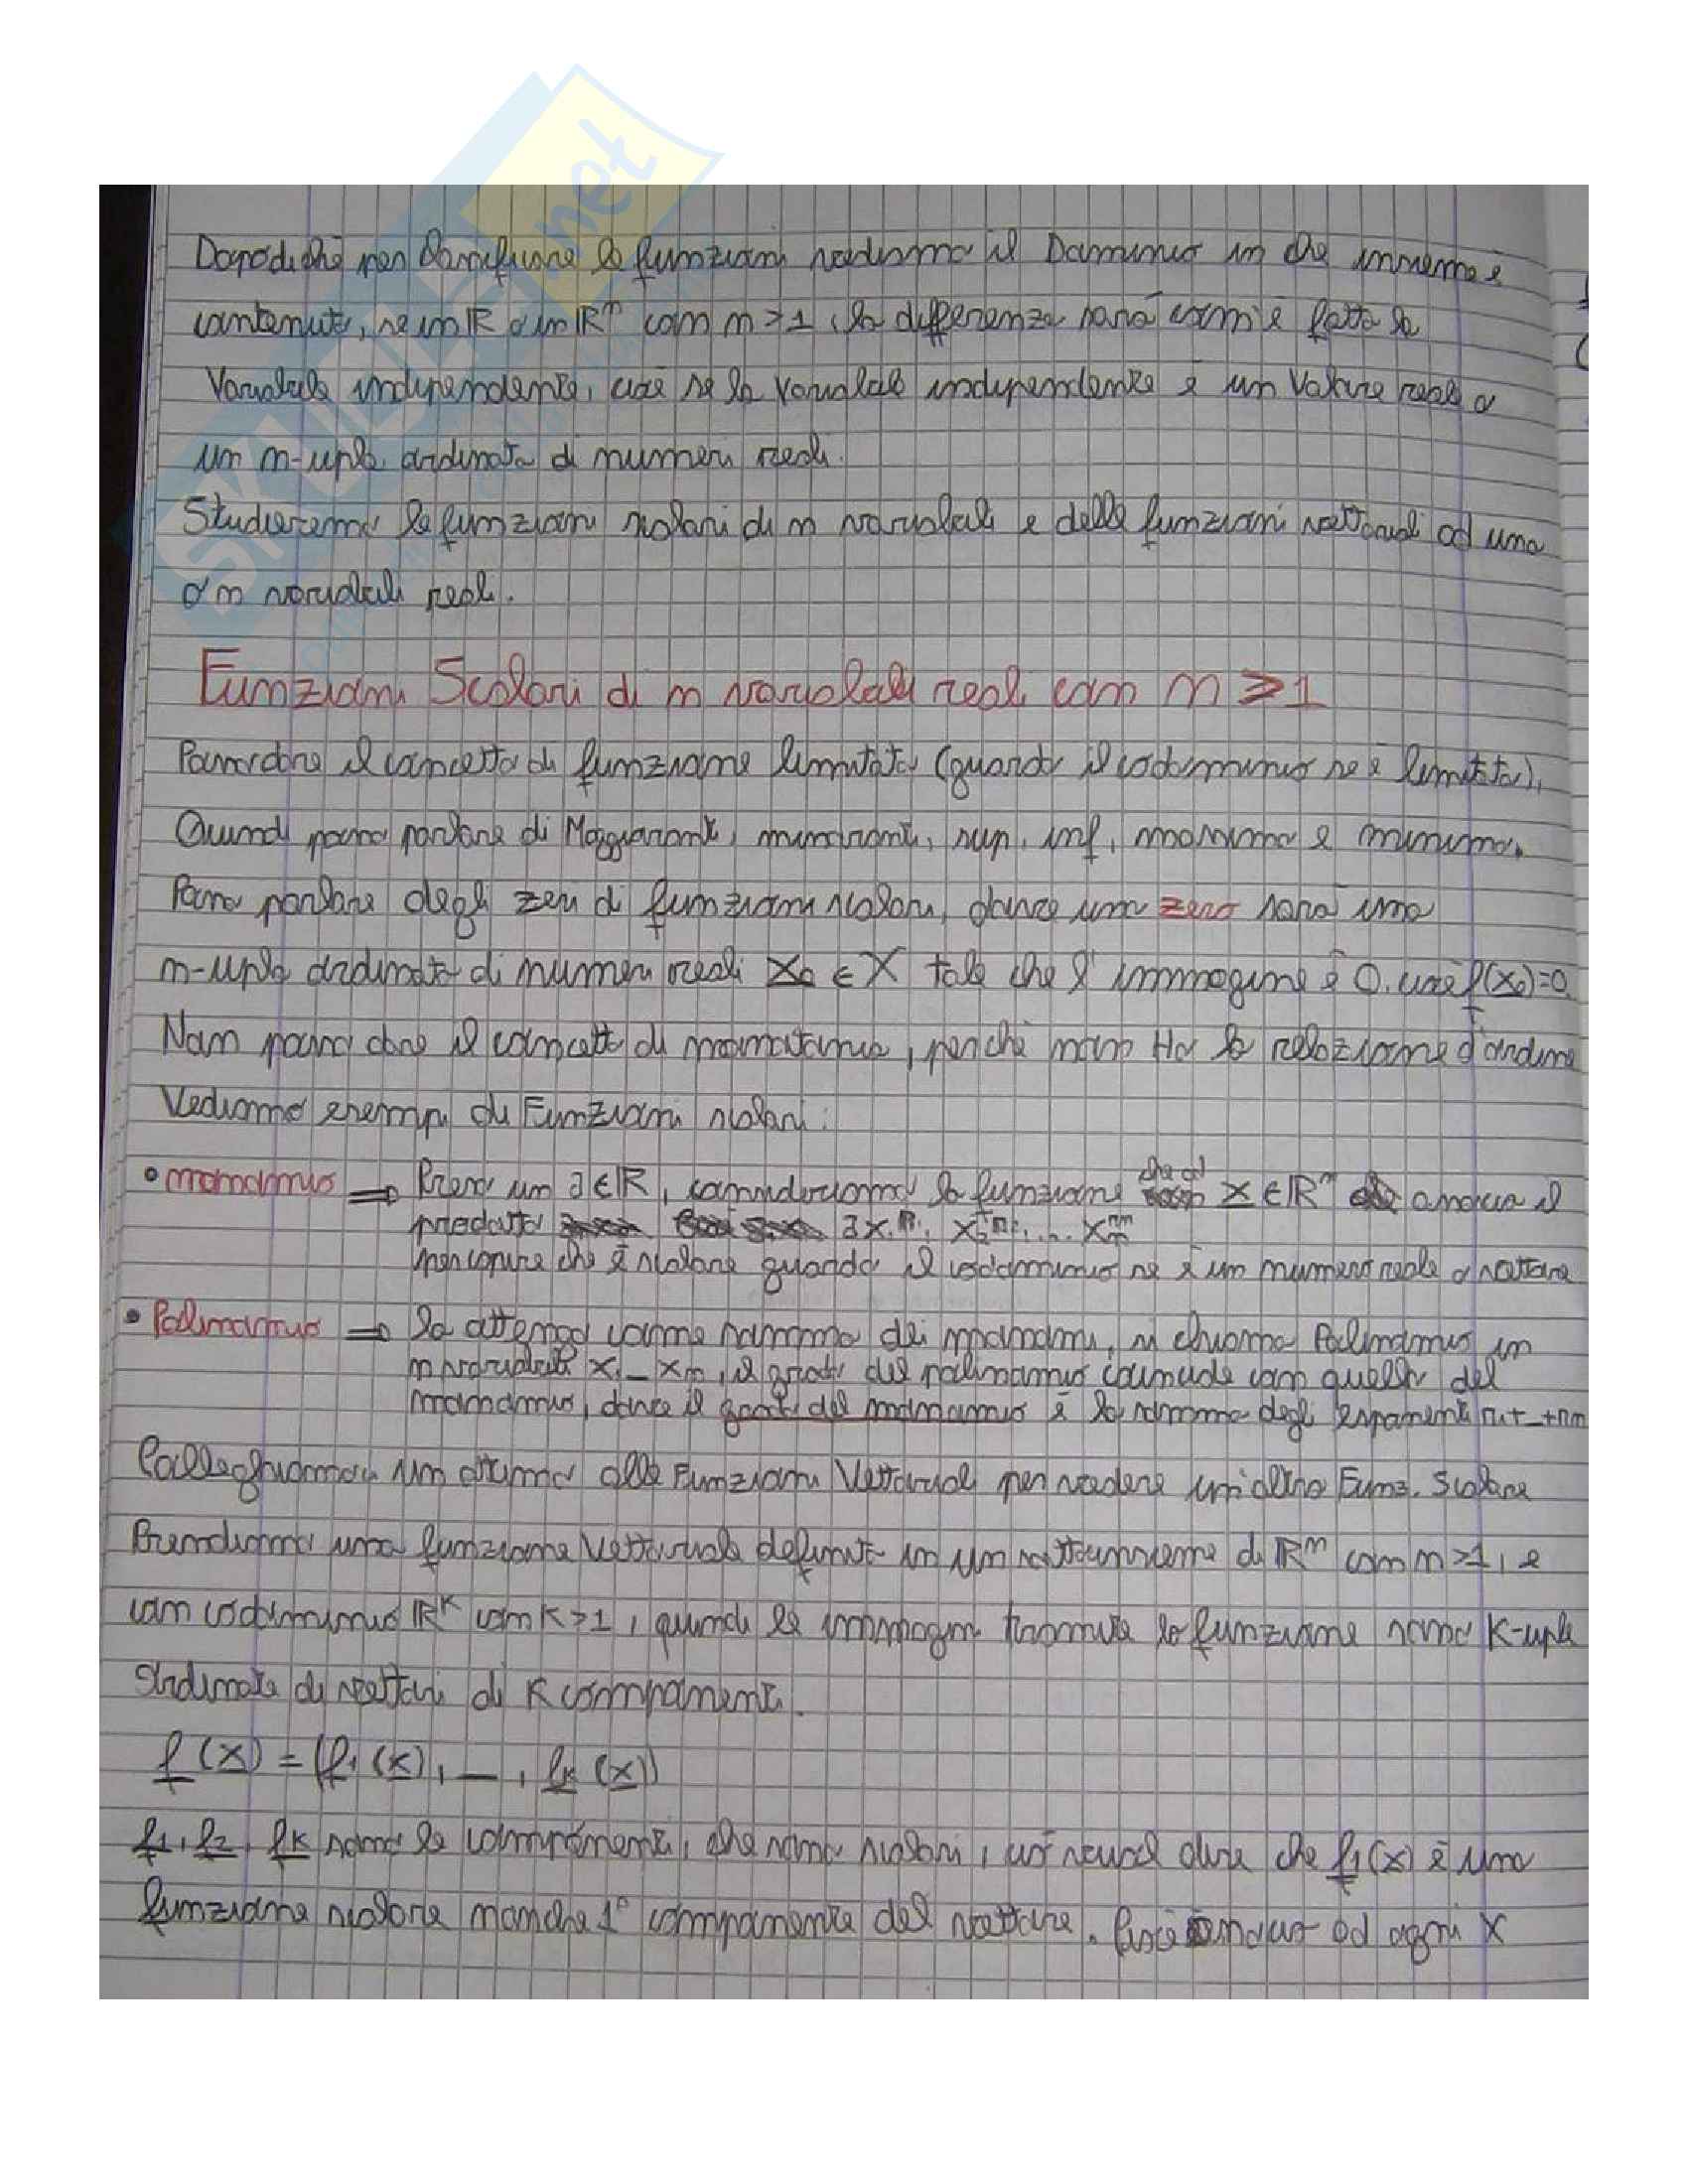 Dopodiché per classificare le funzioni vediamo il Dominio in che insieme è
contenuto, se in ℝ o in ℝⁿ con n>1, la differenza sarà com'è fatta la
Variabile indipendente, cioè se la variabile indipendente è un Valore reale o
un n-upla ordinata di numeri reali.
Studieremo le funzioni scalari di n variabili e delle funzioni vettoriali ad una
o n variabili reali.
Funzioni Scalari di n variabili reali con n ⩾ 1
Posso dare il concetto di funzione limitata (quando il codominio ne è limitato),
Quindi posso parlare di Maggioranti, minoranti, sup, inf, massimo e minimo.
Posso parlare degli zeri di funzioni scalari, dove un zero sarà una
n-upla ordinata di numeri reali x₀ ∈ X tale che l'immagine è 0, cioè f(x₀)=0
Non posso dare il concetto di monotonia, perché non Ho la relazione d'ordine
Vediamo esempi di Funzioni scalari:
• monomio ⇒ Prendo un a∈ℝ, consideriamo la funzione che ad x∈ℝⁿ associa il
prodotto a x₁ⁿ¹, x₂ⁿ²,... xₙⁿⁿ
per capire che è scalare quando il codominio ne è un numero reale o vettore
• Polinomio ⇒ lo ottengo come somma dei monomi, si chiama Polinomio in
n variabili x₁ _ xₙ, il grado del polinomio coincide con quello del
monomio, dove il grado del monomio è la somma degli esponenti n₁+_+nₙ
Colleghiamoci un attimo alle Funzioni Vettoriali per vedere un'altra Funz. Scalare
Prendiamo una funzione Vettoriale definita in un sottoinsieme di ℝⁿ con n>1, e
con codominio ℝᴷ con K>1, quindi le immagini tramite la funzione sono K-uple
Ordinate di vettori di K componenti.
f(x) = (f₁(x), _ , fₖ(x))
f₁, f₂, fₖ sono le componenti, che sono scalari, ciò vuol dire che f₁(x) è una
funzione scalare nonché 1° componente del vettore. Cioè associo ad ogni x